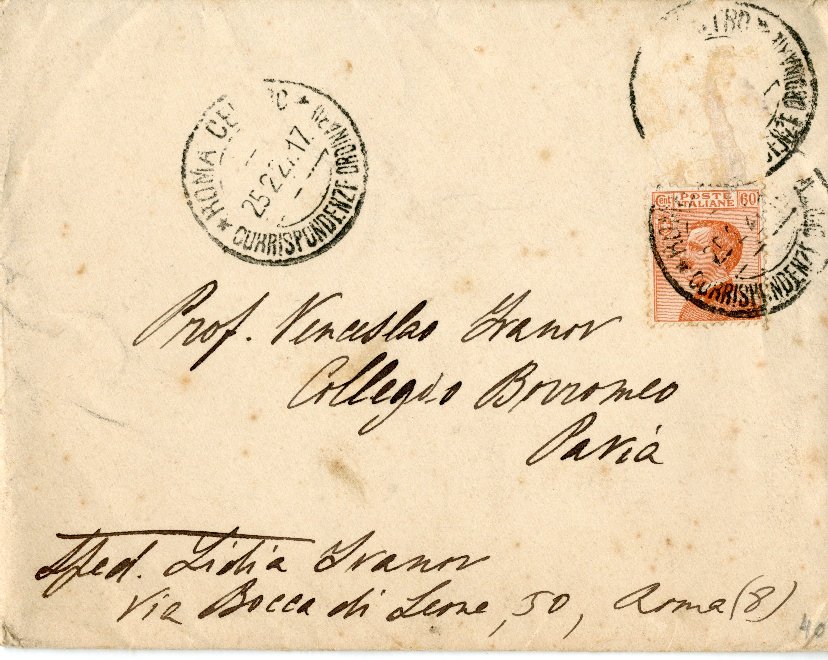 ROMA CENTRO * CORRISPONDENZE ORDINARIE *
25.2.27.17
CORRISPONDENZE ORDINARIE
POSTE ITALIANE 60
ROMA
CORRISPONDENZE
Prof. Venceslao Ivanov
Collegio Borromeo
Pavia
Sped. Lidia Ivanov
Via Bocca di Leone, 50, Roma (8)
40